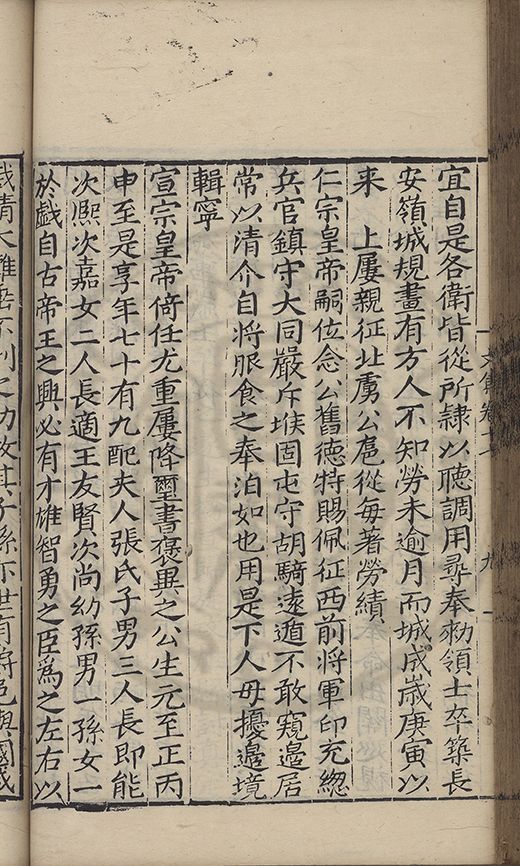 宜自是各衛皆從所隷以聽調用尋奉勑領士卒築長
安嶺城規畫有方人不知勞未逾月而城成歲庚寅以
來　上屢親征北虜公扈從每著勞績
仁宗皇帝嗣位念公舊德特賜佩征西前將軍印充緫
兵官鎮守大同嚴斥堠固屯守胡騎遠遁不敢窺邉居
常以清介自將服食之奉泊如也用是下人毋擾邉境
輯寧
宣宗皇帝倚任尤重屢降璽書褒異之公生元至正丙
申至是享年七十有九配夫人張氏子男三人長即能
次熈次嘉女二人長適王友賢次尚幼孫男一孫女一
於戲自古帝王之興必有才雄智勇之臣爲之左右以